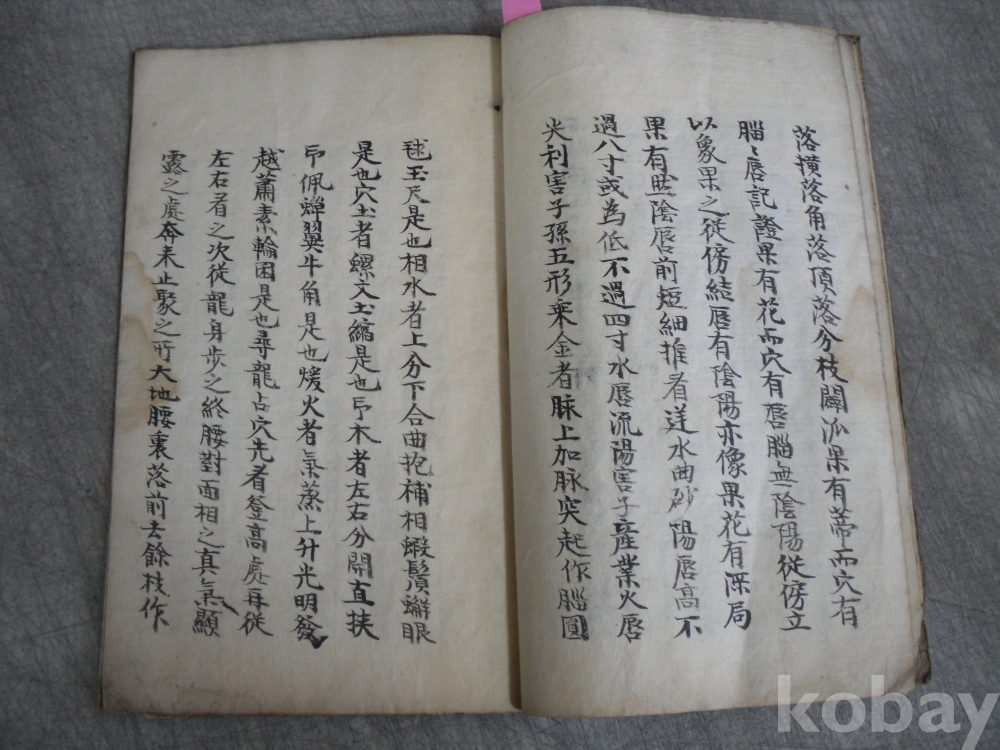 落橫落角落頂落分枝闢派果有蒂而穴有
腦〻唇記證果有花而穴有唇腦無陰陽從傍立
以象果之從傍結唇有陰陽亦像果花有深局
果有陰唇前短細推者逆水曲砂陽唇高不
過八寸或為低不過四寸水唇流陽害子產業火唇
尖利害子孫五形乘金者脉上加脉突起作腦圓
毬玉尺是也相水者上分下合曲抱補相蝦鬚蠏眼
是也穴土者螺文土縮是也印木者左右分開直挟
印佩蟬翼牛角是也煖火者氣蒸上升光明發
越蕭素輪囷是也尋龍占穴先看登高處再從
左右看之次從龍身步之終腰對面相之真氣顯
露之處奔来止聚之所大地腰裏落前去餘枝作
kobay